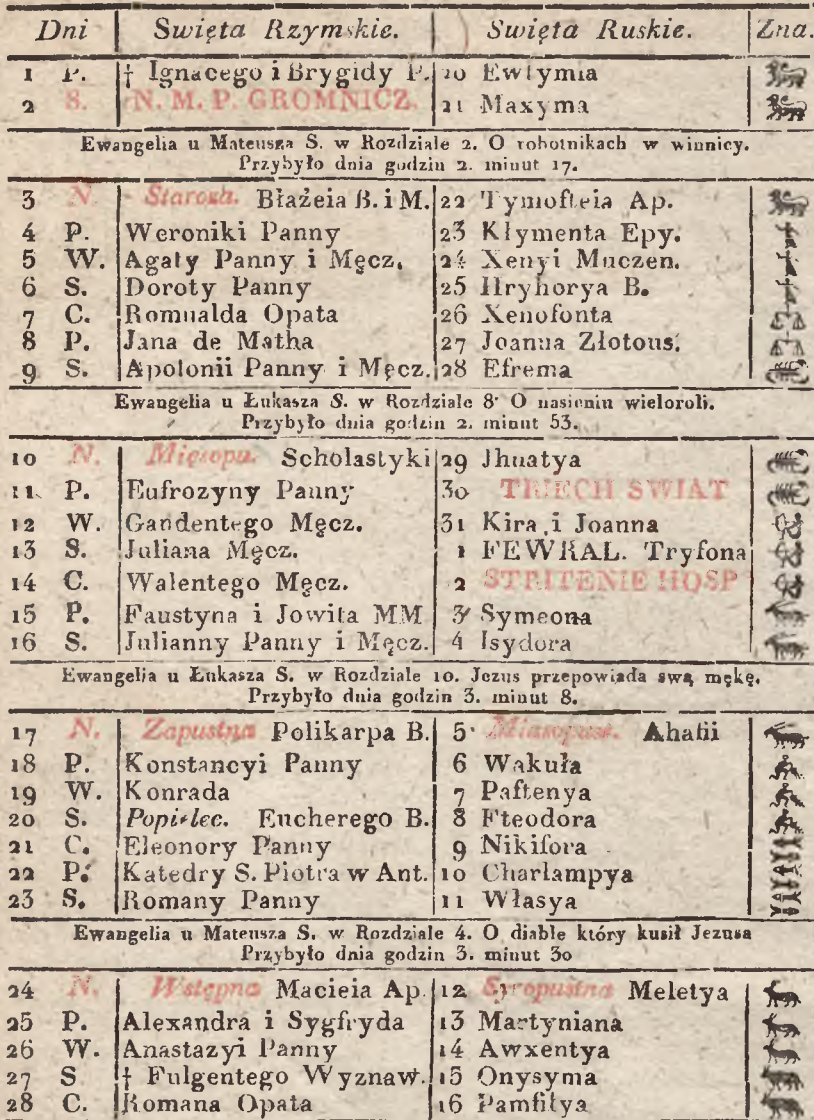 Dni Swięta Rzymskie. Swięta Ruskie. Zna.
1 P. † Ignacego i Brygidy P. 20 Ewtymia
2 S. N. M. P. GROMNICZ. 21 Maxyma
Ewangelia u Mateusza S. w Rozdziale 2. O robotnikach w winnicy.
Przybyło dnia godzin 2. minut 17.
3 N. Starozh. Błażeia B. i M. 22 Tymofteia Ap.
4 P. Weroniki Panny 23 Kłymenta Epy.
5 W. Agaty Panny i Męcz. 24 Xenyi Muczen.
6 S. Doroty Panny 25 Hryhorya B.
7 C. Romualda Opata 26 Xenofonta
8 P. Jana de Matha 27 Joanna Złotous.
9 S. Apolonii Panny i Męcz. 28 Efrema
Ewangelia u Łukasza S. w Rozdziale 8. O nasieniu wieloroli.
Przybyło dnia godzin 2. minut 53.
10 N. Mięsopu. Scholastyki 29 Jhnatya
11 P. Eufrozyny Panny 30 TRIECH SWIAT
12 W. Gaudentego Męcz. 31 Kira i Joanna
13 S. Juliana Męcz. 1 FEWRAL. Tryfona
14 C. Walentego Męcz. 2 STRITENIE HOSP
15 P. Faustyna i Jowita MM 3 Symeona
16 S. Julianny Panny i Męcz. 4 Isydora
Ewangelia u Łukasza S. w Rozdziale 10. Jezus przepowiada swą mękę.
Przybyło dnia godzin 3. minut 8.
17 N. Zapustna Polikarpa B. 5 Miasopust. Ahafii
18 P. Konstancyi Panny 6 Wakuła
19 W. Konrada 7 Paftenya
20 S. Popielec. Eucherego B. 8 Fteodora
21 C. Eleonory Panny 9 Nikifora
22 P. Katedry S. Piotra w Ant. 10 Charlampya
23 S. Romany Panny 11 Własya
Ewangelia u Mateusza S. w Rozdziale 4. O diable który kusił Jezusa
Przybyło dnia godzin 3. minut 30
24 N. Wstępna Macieia Ap. 12 Syropustna Meletya
25 P. Alexandra i Sygfryda 13 Martyniana
26 W. Anastazyi Panny 14 Awxentya
27 S † Fulgentego Wyznaw. 15 Onysyma
28 C. Romana Opata 16 Pamfilya